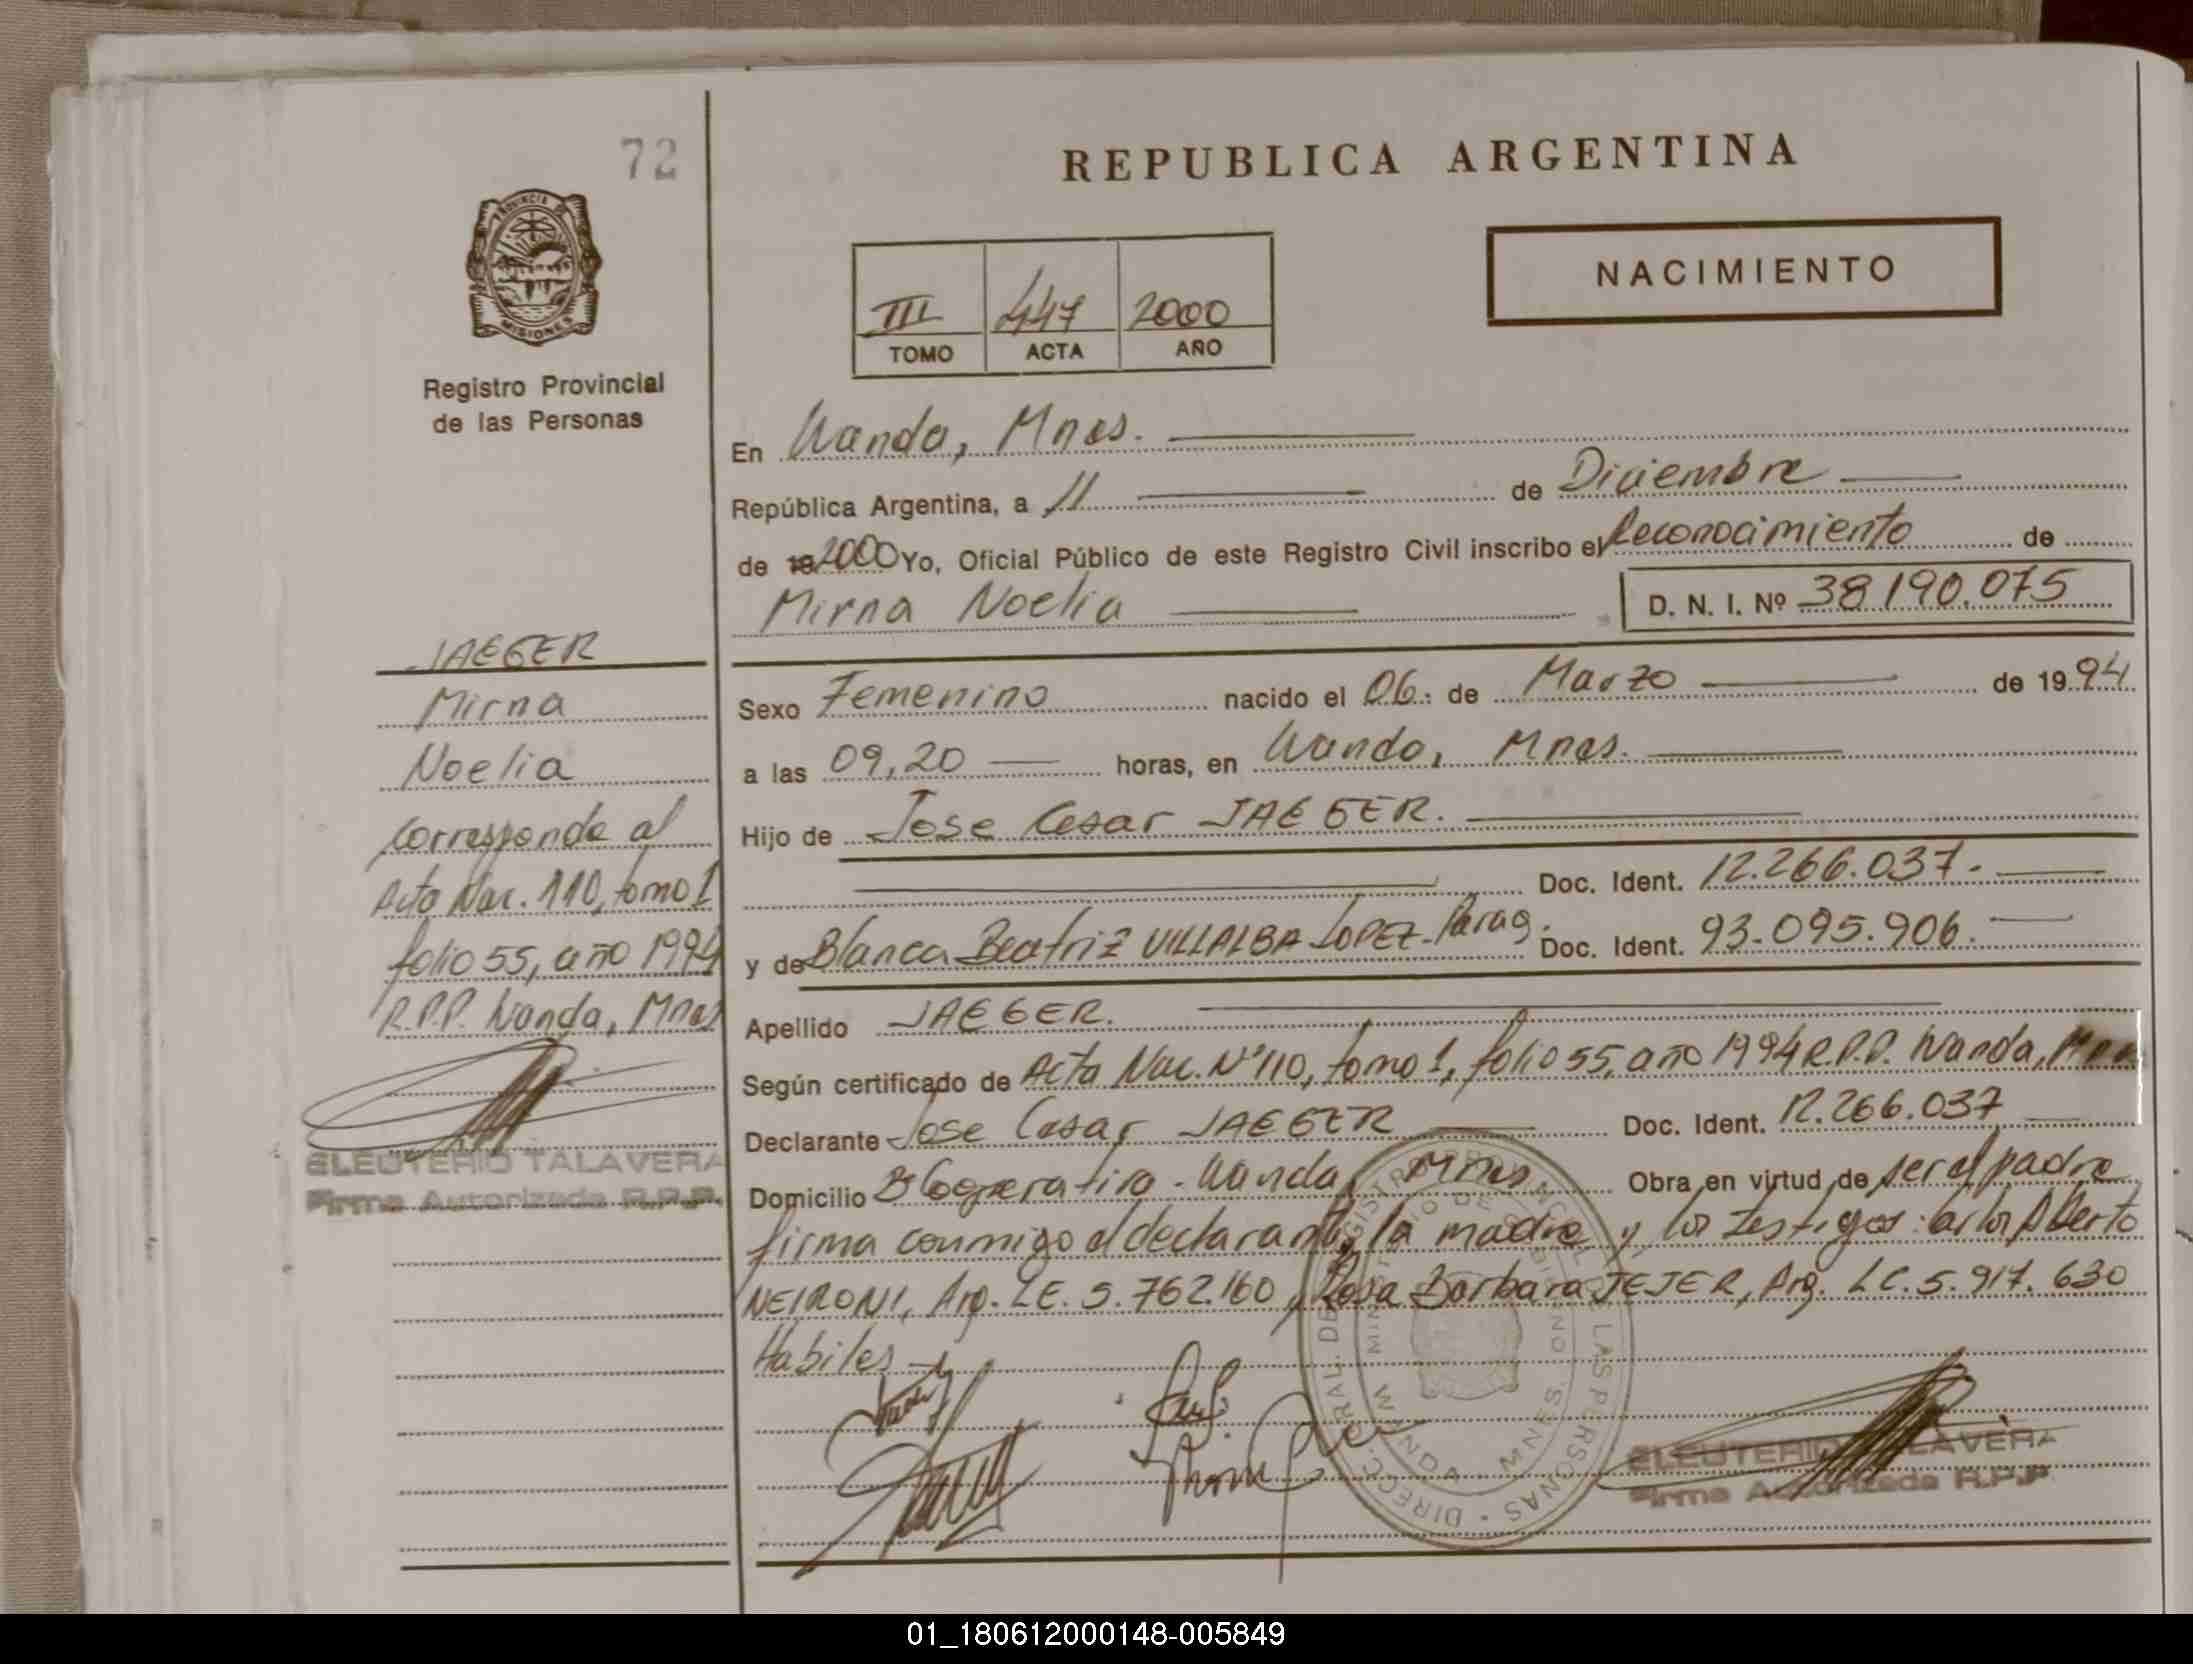 72
REPUBLICA ARGENTINA
PROVINCIA DE
MISIONES
Registro Provincial
de las Personas
NACIMIENTO
III 447 2000
TOMO ACTA AÑO
En Wanda, Mnes.
República Argentina, a 11 de Diciembre
de 19 2000 Yo, Oficial Público de este Registro Civil inscribo el Reconocimiento de
Mirna Noelia D. N. I. Nº 38190.075
JAEGER
Mirna
Noelia
Corresponde al
Acta Nac. 110, tomo 1
folio 55, año 1994
R.P.P. Wanda, Mnes
ELEUTERIO TALAVERA
Firma Autorizada R.P.P.
Sexo Femenino nacido el 06 de Marzo de 1994
a las 09,20 horas, en Wanda, Mnes.
Hijo de Jose Cesar JAEGER.
Doc. Ident. 12.266.037.
y de Blanca Beatriz VILLALBA LOPEZ-Parag. Doc. Ident. 93.095.906.
Apellido JAEGER.
Según certificado de Acta Nac. Nº 110, tomo 1, folio 55, año 1994 R.P.P. Wanda, Mnes
Declarante Jose Cesar JAEGER Doc. Ident. 12.266.037
Domicilio Bº Cooperativa - Wanda, Mnes. Obra en virtud de ser el padre
firma conmigo el declarante, la madre y los testigos: Carlos Alberto
NEIRONI, Arg. LE. 5.762.160 y Rosa Barbara JEJER, Arg. LC. 5.917.630
Habiles
DIRECC. GRAL. DE REGISTRO LAS PERSONAS
WANDA - MNES.
ELEUTERIO TALAVERA
Firma Autorizada R.P.P
01_180612000148-005849